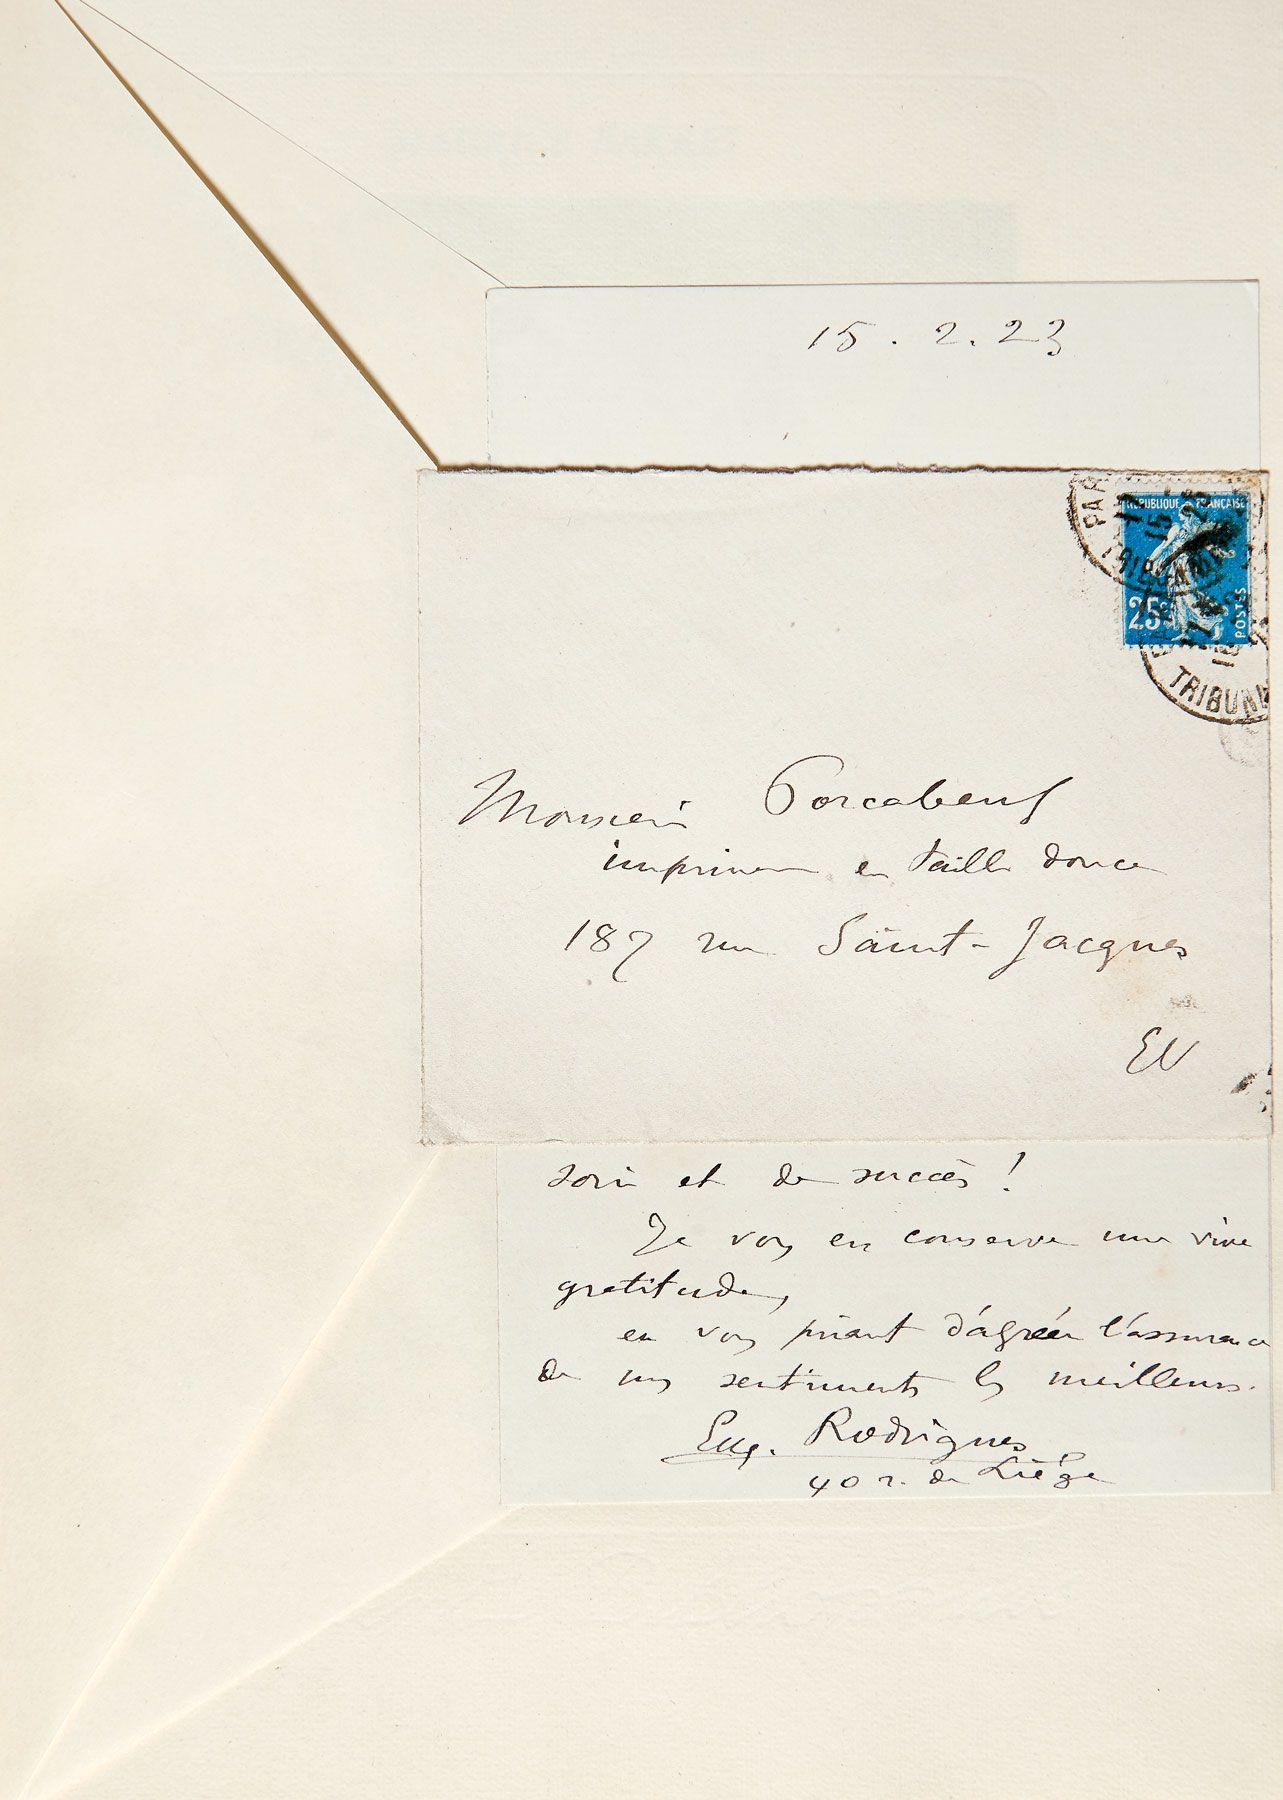 15.2.23
RÉPUBLIQUE FRANÇAISE
25c
POSTES
PAR
TRIBUNAL
TRIBUNA
Monsieur Porcabeuf
imprimeur en taille douce
187 rue Saint-Jacques
EV
soin et de succès !
Je vous en conserve une vive
gratitude,
en vous priant d'agréer l'assurance
de mes sentiments les meilleurs.
Eug. Rodrigues
40 r. de Liège